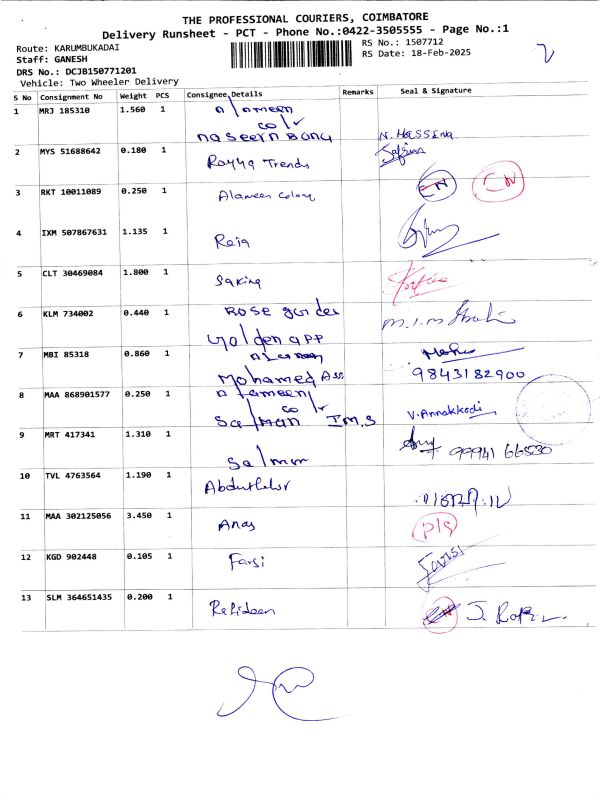 THE PROFESSIONAL COURIERS, COIMBATORE
Delivery Runsheet - PCT - Phone No.:0422-3505555 - Page No.:1
Route: KARUMBUKADAI
RS No.: 1507712
Staff: GANESH
RS Date: 18-Feb-2025
DRS No.: DCJB150771201
Vehicle: Two Wheeler Delivery
S No Consignment No Weight PCS Consignee Details Remarks Seal & Signature
1 MRJ 185310 1.560 1 Alameen
naseern banu N. HUSSENA
2 MYS 51688642 0.180 1 Rayya Trends
3 RKT 10011089 0.250 1 Alameen colony
4 IXM 507867631 1.135 1 Reja
5 CLT 30469084 1.800 1 Sakina
6 KLM 734002 0.440 1 Rose garden
Golden app
7 MBI 85318 0.860 1
Mohamed Ass 9843182900
8 MAA 868901577 0.250 1 Alameen
Salman I.M.S V. Annakkodi
9 MRT 417341 1.310 1 99941 66530
Salmon
10 TVL 4763564 1.190 1
11 MAA 302125056 3.450 1 Anas P/S
12 KGD 902448 0.105 1 Farsi
13 SLM 364651435 0.200 1